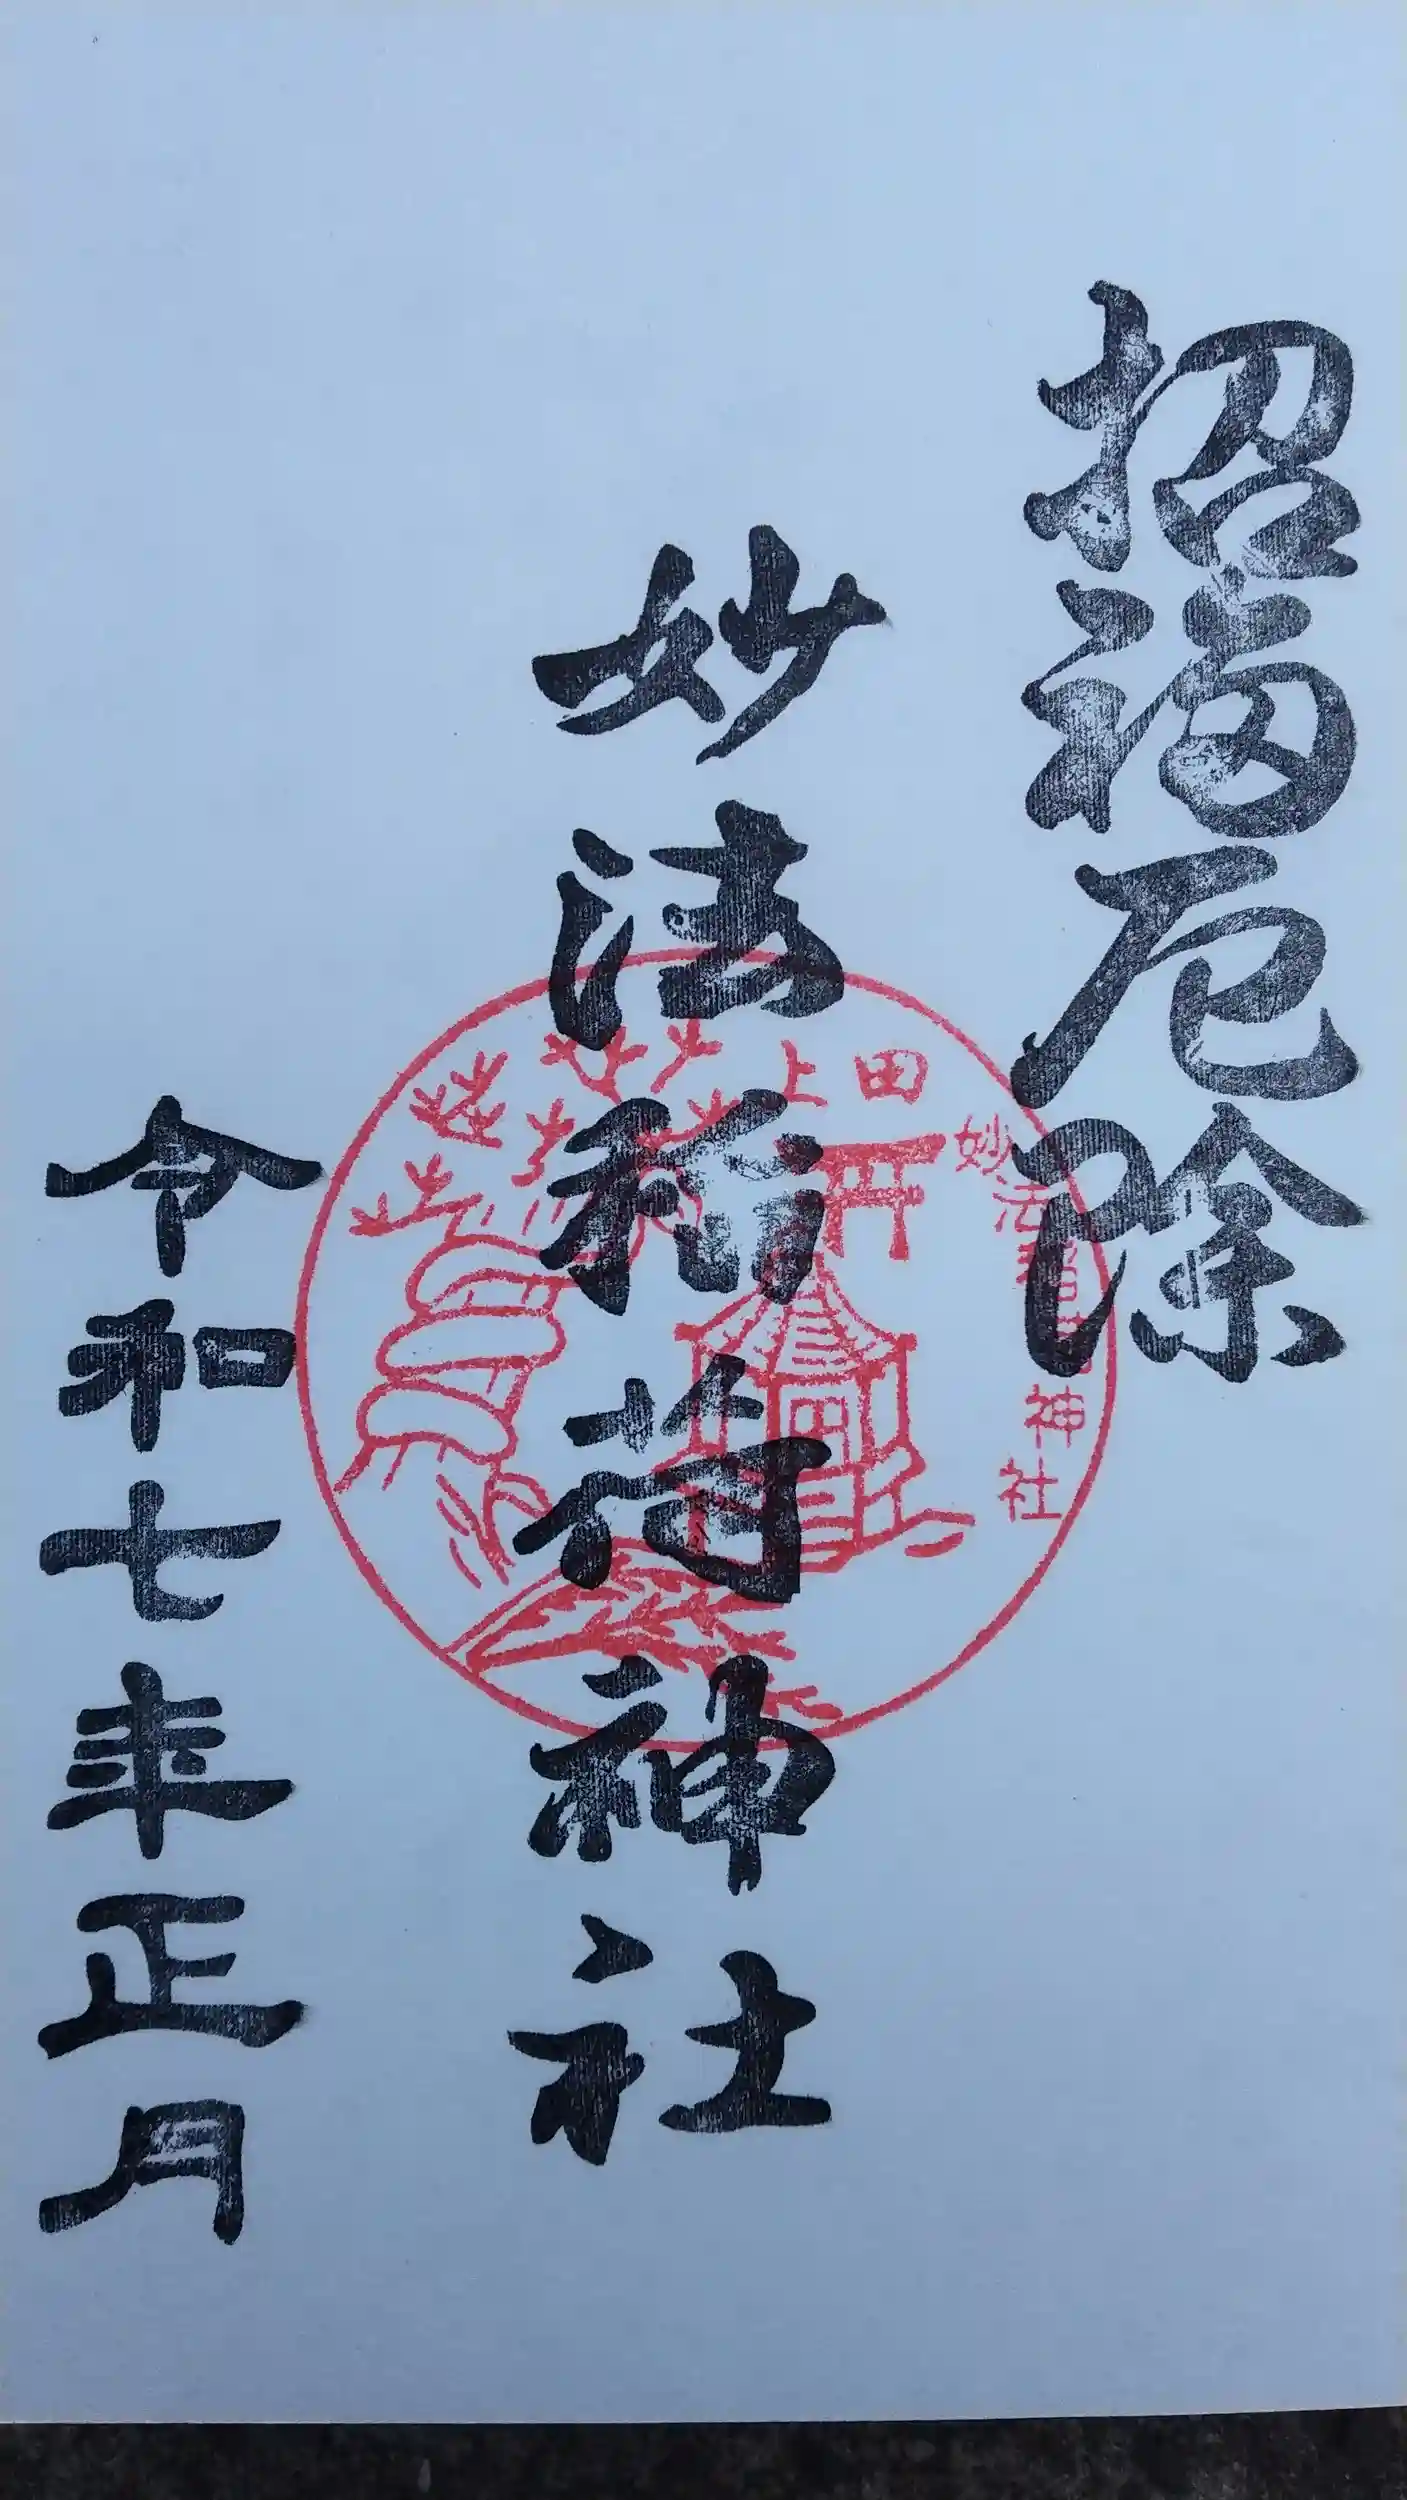 招福厄除
妙法稲荷神社
令和七年正月
上田
妙法稲荷神社